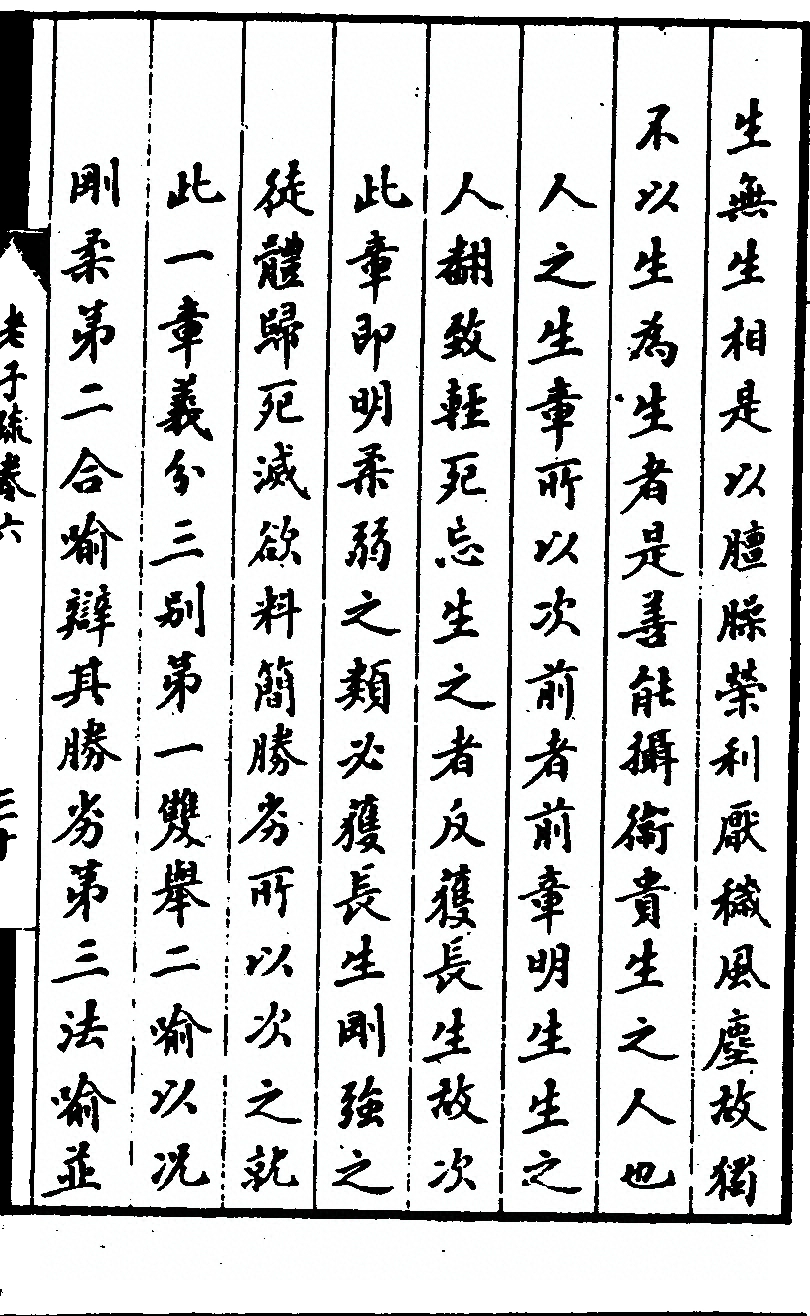 生無生相是以膻臊榮利厭穢風塵故獨
不以生為生者是善能攝衛貴生之人也
人之生章所以次前者前章明生生之
人翻致輕死忘生之者反獲長生故次
此章即明柔弱之類必獲長生剛強之
徒體歸死滅欲料簡勝劣所以次之就
此一章義分三別第一雙舉二喻以況
剛柔第二合喻辯其勝劣第三法喻並
老子疏卷六
三十